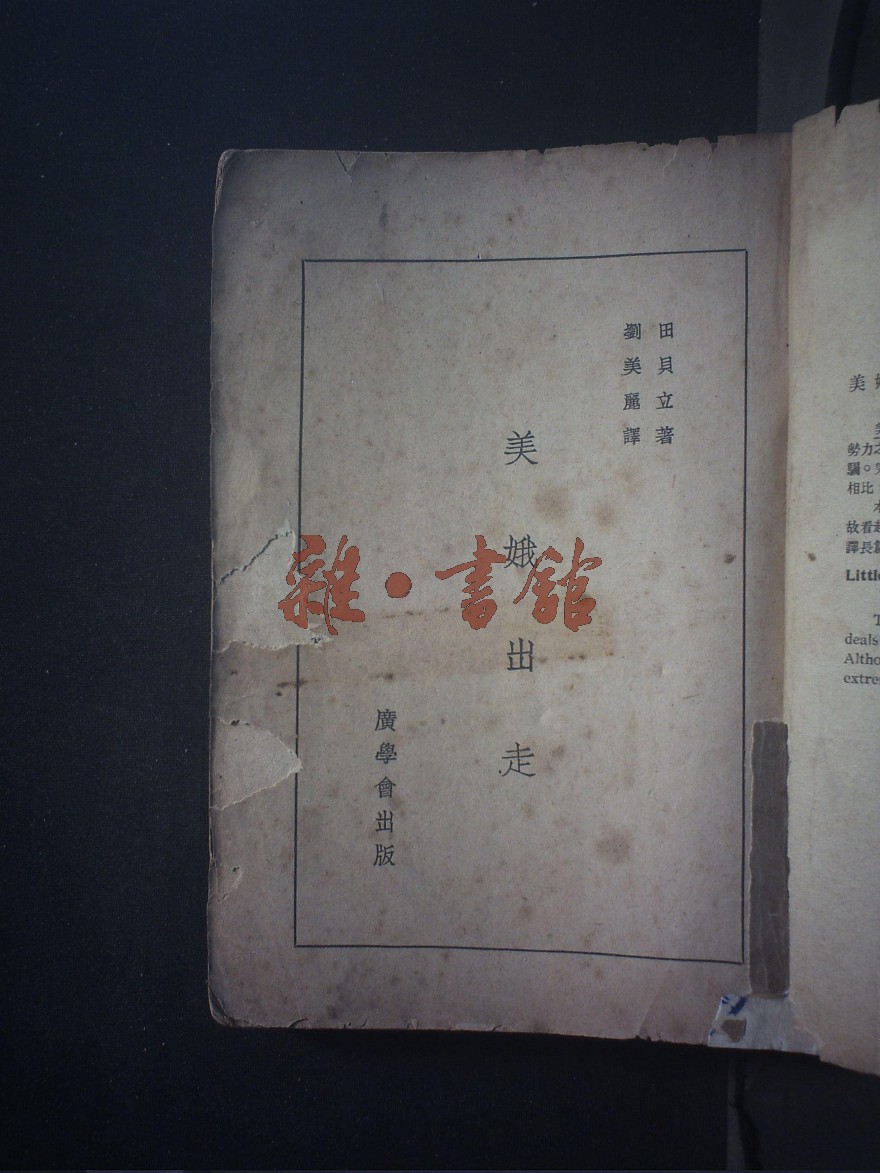 田貝立著
劉美麗譯
美娥出走
廣學會出版
雜·書館
美
勢力
騙。
相比
故看
譯長
Little
deals
Altho
extre